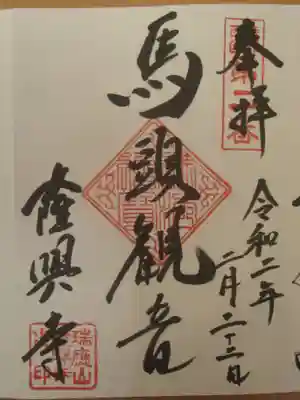 奉拝
令和二年
二月二十二日
馬頭観音
隆興寺
瑞應山